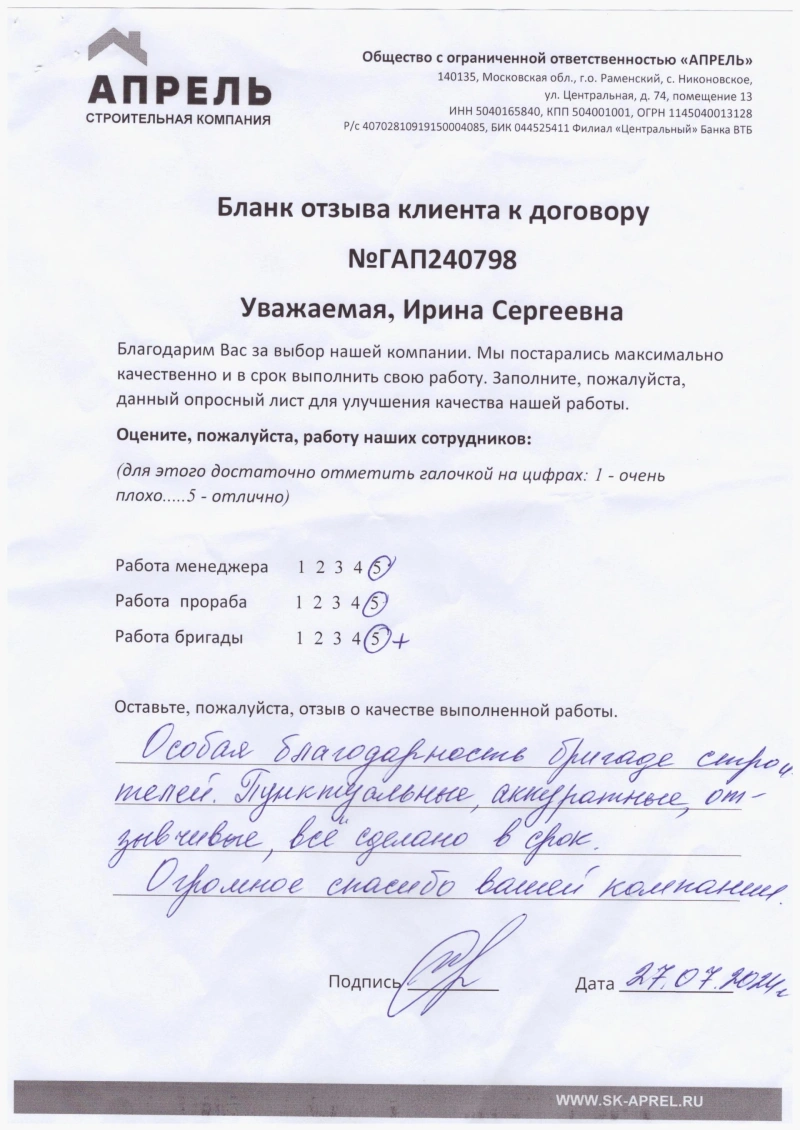 АПРЕЛЬ
СТРОИТЕЛЬНАЯ КОМПАНИЯ
Общество с ограниченной ответственностью «АПРЕЛЬ»
140135, Московская обл., г.о. Раменский, с. Никоновское,
ул. Центральная, д. 74, помещение 13
ИНН 5040165840, КПП 504001001, ОГРН 1145040013128
Р/с 40702810919150004085, БИК 044525411 Филиал «Центральный» Банка ВТБ
Бланк отзыва клиента к договору
№ГАП240798
Уважаемая, Ирина Сергеевна
Благодарим Вас за выбор нашей компании. Мы постарались максимально
качественно и в срок выполнить свою работу. Заполните, пожалуйста,
данный опросный лист для улучшения качества нашей работы.
Оцените, пожалуйста, работу наших сотрудников:
(для этого достаточно отметить галочкой на цифрах: 1 - очень
плохо.....5 - отлично)
Работа менеджера 1 2 3 4 5
Работа прораба 1 2 3 4 5
Работа бригады 1 2 3 4 5 +
Оставьте, пожалуйста, отзыв о качестве выполненной работы.
Особая благодарность бригаде строи
телей. Пунктуальные, аккуратные, от-
зывчивые, всё сделано в срок.
Огромное спасибо вашей компании.
Подпись Дата 27.07.2024г
WWW.SK-APREL.RU